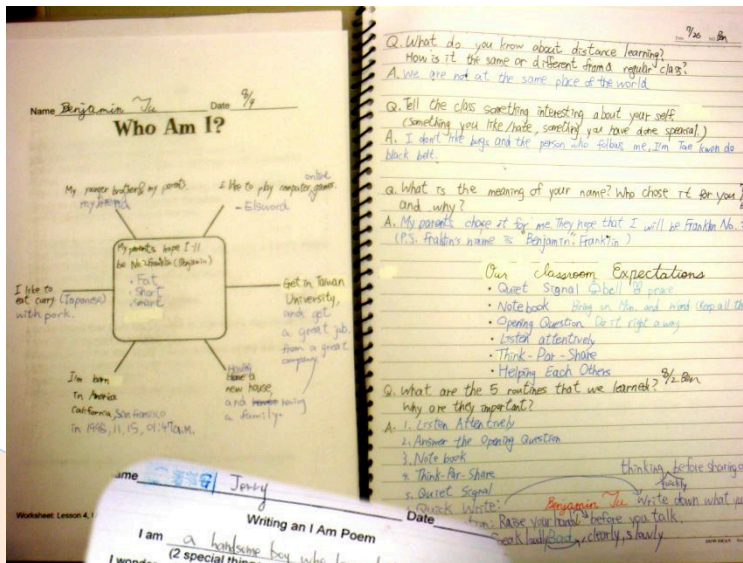 Name Benjamin Tu Date 8/9
Who Am I?
My younger brother & my parents.
my friend
I like to play computer online games.
- Elsword
My parents hope I'll
be No.2 Franklin (Benjamin)
• Fat
• Short
• Smart
I like to
eat curry (Japanese)
with pork.
Get in Taiwan
University,
and get
a great job
from a great
company.
I'm born
in America
California, San Fransisco
in 1998, 11, 15, 01:47a.m.
Having
Have a
new house
and having
a family.
Worksheet: Lesson 4,
ame Jerry
Date
Writing an I Am Poem
I am a handsome boy who
(2 special thing
I wonde
7/26 Ben
Q. What do you know about distance learning?
How is it the same or different from a regular class?
A. We are not at the same place of the world
Q. Tell the class something interesting about your self
(something you like/hate, something you have done special.)
A. I don't like bugs and the person who follows me, I'm Tae kwen do
black belt.
Q. What is the meaning of your name? Who chose it for you?
and why?
A. My parents chose it for me. They hope that I will be Franklin No.
(P.S. Franklin's name is Benjamin. Franklin)
Our classroom Expectations
• Quiet Signal bell & peace
• Notebook Bring on Mon. and Wend (keep all th
• Opening Question Do it right away
• Listen attentively
• Think-Par-Share
• Helping Each Others
Q. What are the 5 routines that we learned? 8/2 Ben
Why are they important?
A. 1. Listen Attentively
2. Answer the Opening Question
3. Note book
4. Think-Par-Share
5. Quiet Signal
thinking before sharing
quietly
Quick Write: Benjamin Tu Write down what you
Raise your hand before you talk.
Speak loudly, clearly, slowly